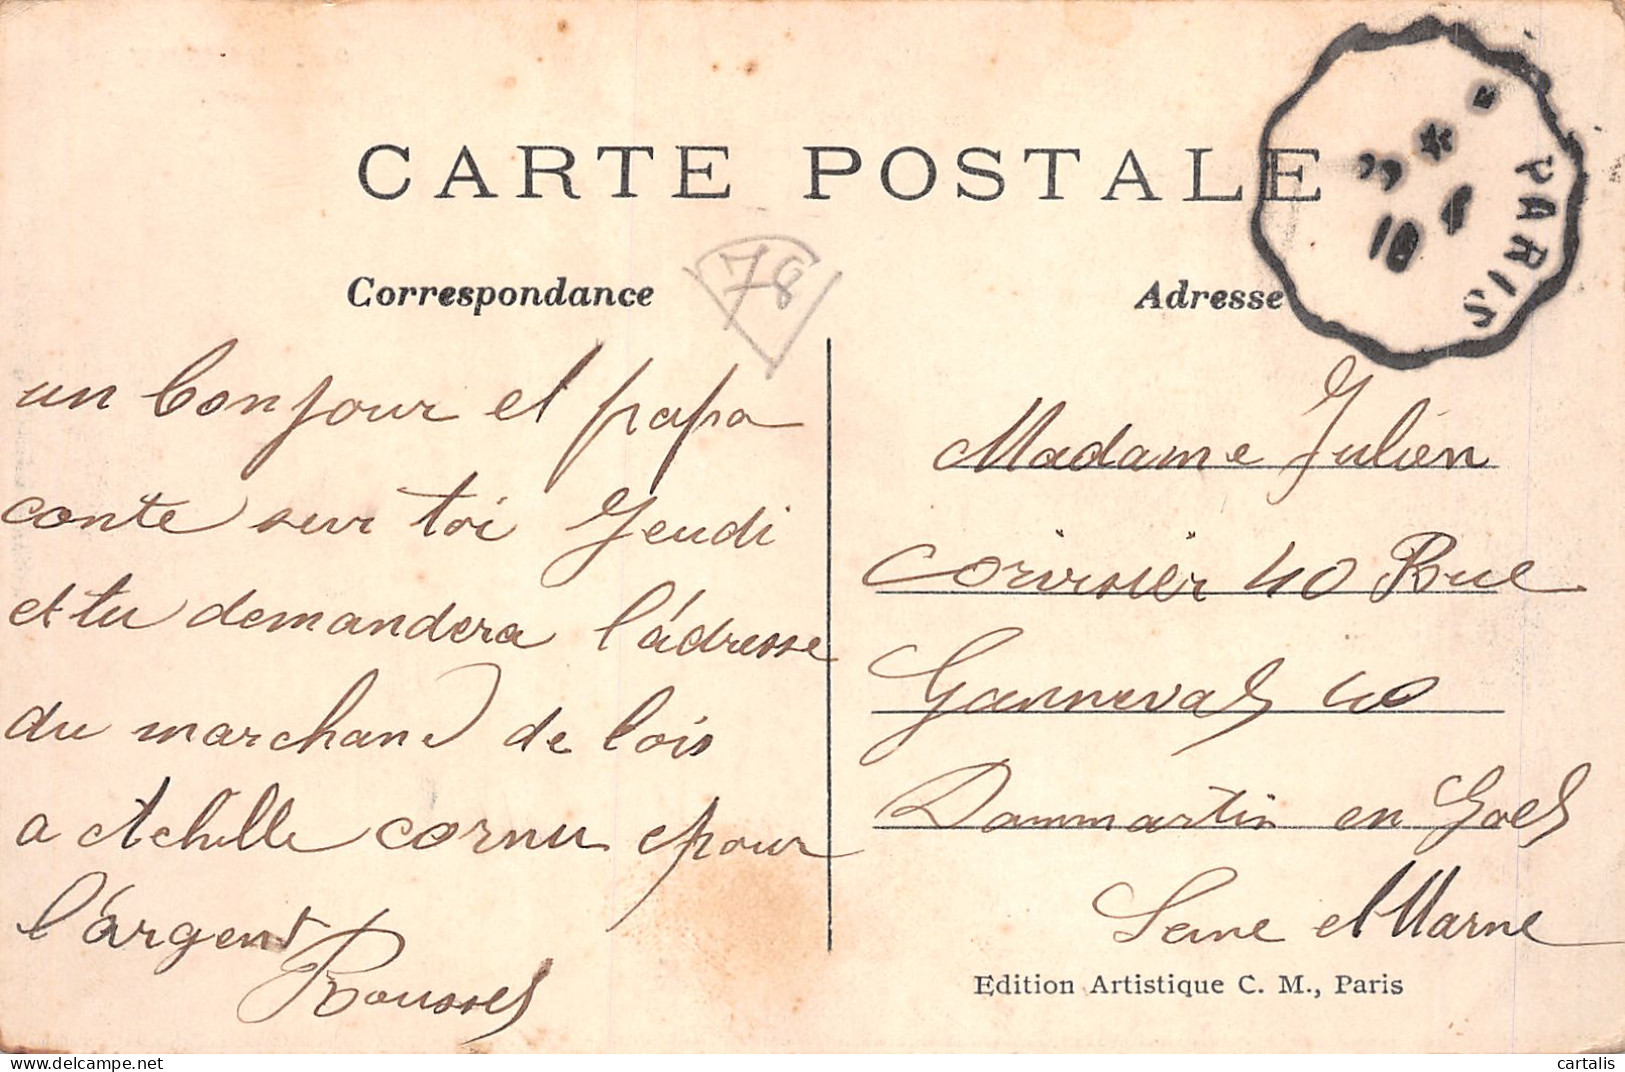 CARTE POSTALE
PARIS
10
78
Correspondance
Adresse
un bonjour et papa
conte sur toi Jeudi
et tu demandera l'adresse
du marchand de bois
a Achille cornu pour
l'argent
Roussel
Madame Julien
Corvisier 40 Rue
Ganneval 40
Dammartin en Goel
Seine et Marne
Edition Artistique C. M., Paris
cartalis